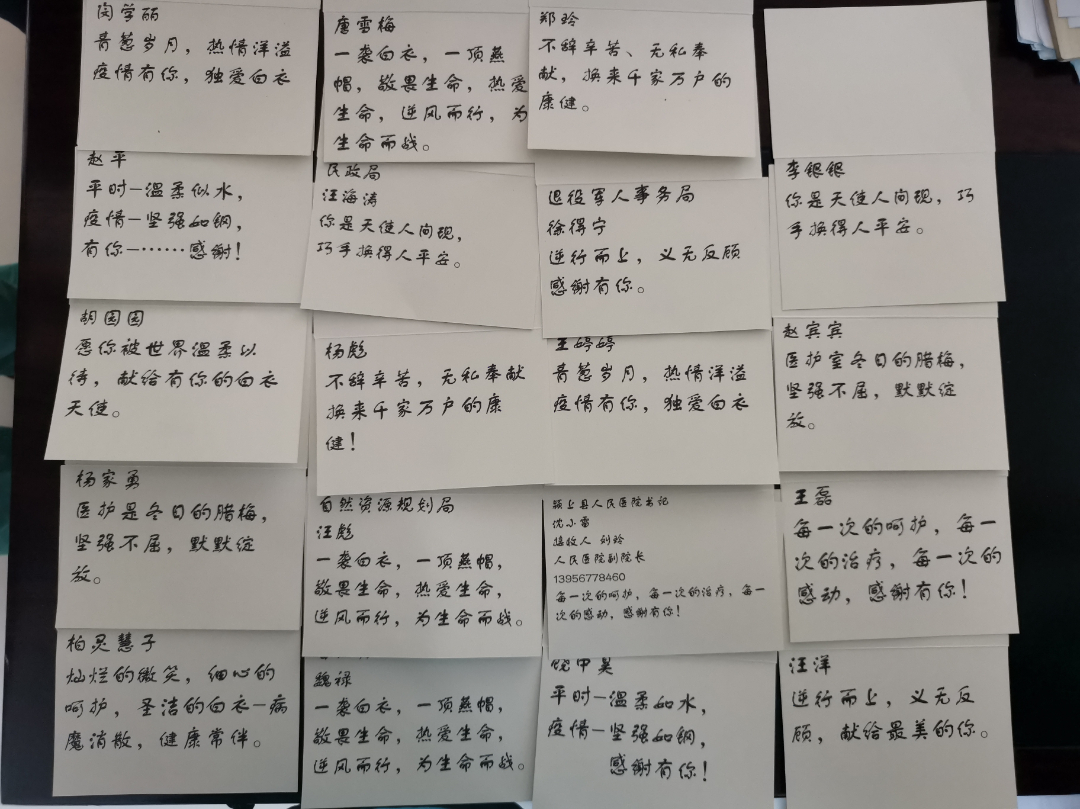 闵学丽
青葱岁月，热情洋溢
疫情有你，独爱白衣
唐雪梅
一袭白衣，一顶燕
帽，敬畏生命，热爱
生命，逆风而行，为
生命而战。
郑玲
不辞辛苦、无私奉
献，换来千家万户的
康健。
赵平
平时—温柔似水，
疫情—坚强如钢，
有你—……感谢！
民政局
汪海涛
你是天使人间现，
巧手换得人平安。
退役军人事务局
徐得宁
逆行而上，义无反顾
感谢有你。
李银银
你是天使人间现，巧
手换得人平安。
胡园园
愿你被世界温柔以
待，献给有你的白衣
天使。
杨彪
不辞辛苦，无私奉献
换来千家万户的康
健！
王婷婷
青葱岁月，热情洋溢
疫情有你，独爱白衣
赵宾宾
医护室冬日的腊梅，
坚强不屈，默默绽
放。
杨家勇
医护是冬日的腊梅，
坚强不屈，默默绽
放。
自然资源规划局
汪彪
一袭白衣，一顶燕帽，
敬畏生命，热爱生命，
逆风而行，为生命而战。
颍上县人民医院书记
沈小雷
接收人 刘玲
人民医院副院长
13956778460
每一次的呵护，每一次的治疗，每一
次的感动，感谢有你！
王磊
每一次的呵护，每一
次的治疗，每一次的
感动，感谢有你！
柏灵慧子
灿烂的微笑，细心的
呵护，圣洁的白衣—病
魔消散，健康常伴。
魏禄
一袭白衣，一顶燕帽，
敬畏生命，热爱生命，
逆风而行，为生命而战。
平时—温柔如水，
疫情—坚强如钢，
感谢有你！
汪洋
逆行而上，义无反
顾，献给最美的你。